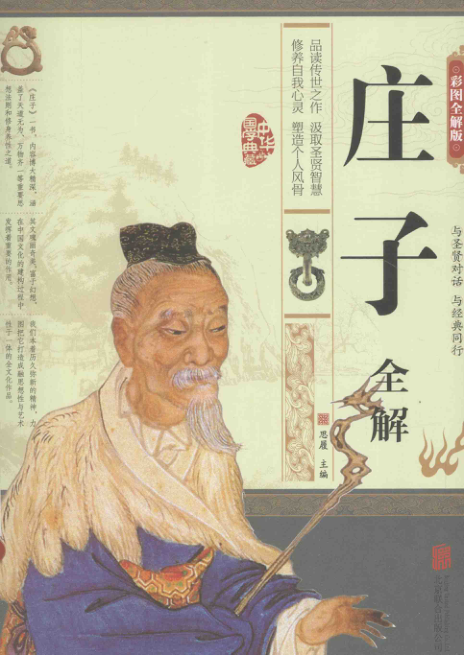 彩图全解版
庄子
全解
与圣贤对话 与经典同行
品读传世之作 汲取圣贤智慧
修养自我心灵 塑造个人风骨
中华
国学典藏
思履 主编
《庄子》一书,内容博大精深,涵
盖了天道无为、万物齐一等重要思
想法则和修身养性之道。
其文瑰丽奇美,富于幻想,
在中国文化的建构过程中
发挥着重要的作用。
我们本着历久弥新的精神,力
图把它打造成融思想性与艺术
性于一体的全文化作品。
北京联合出版公司